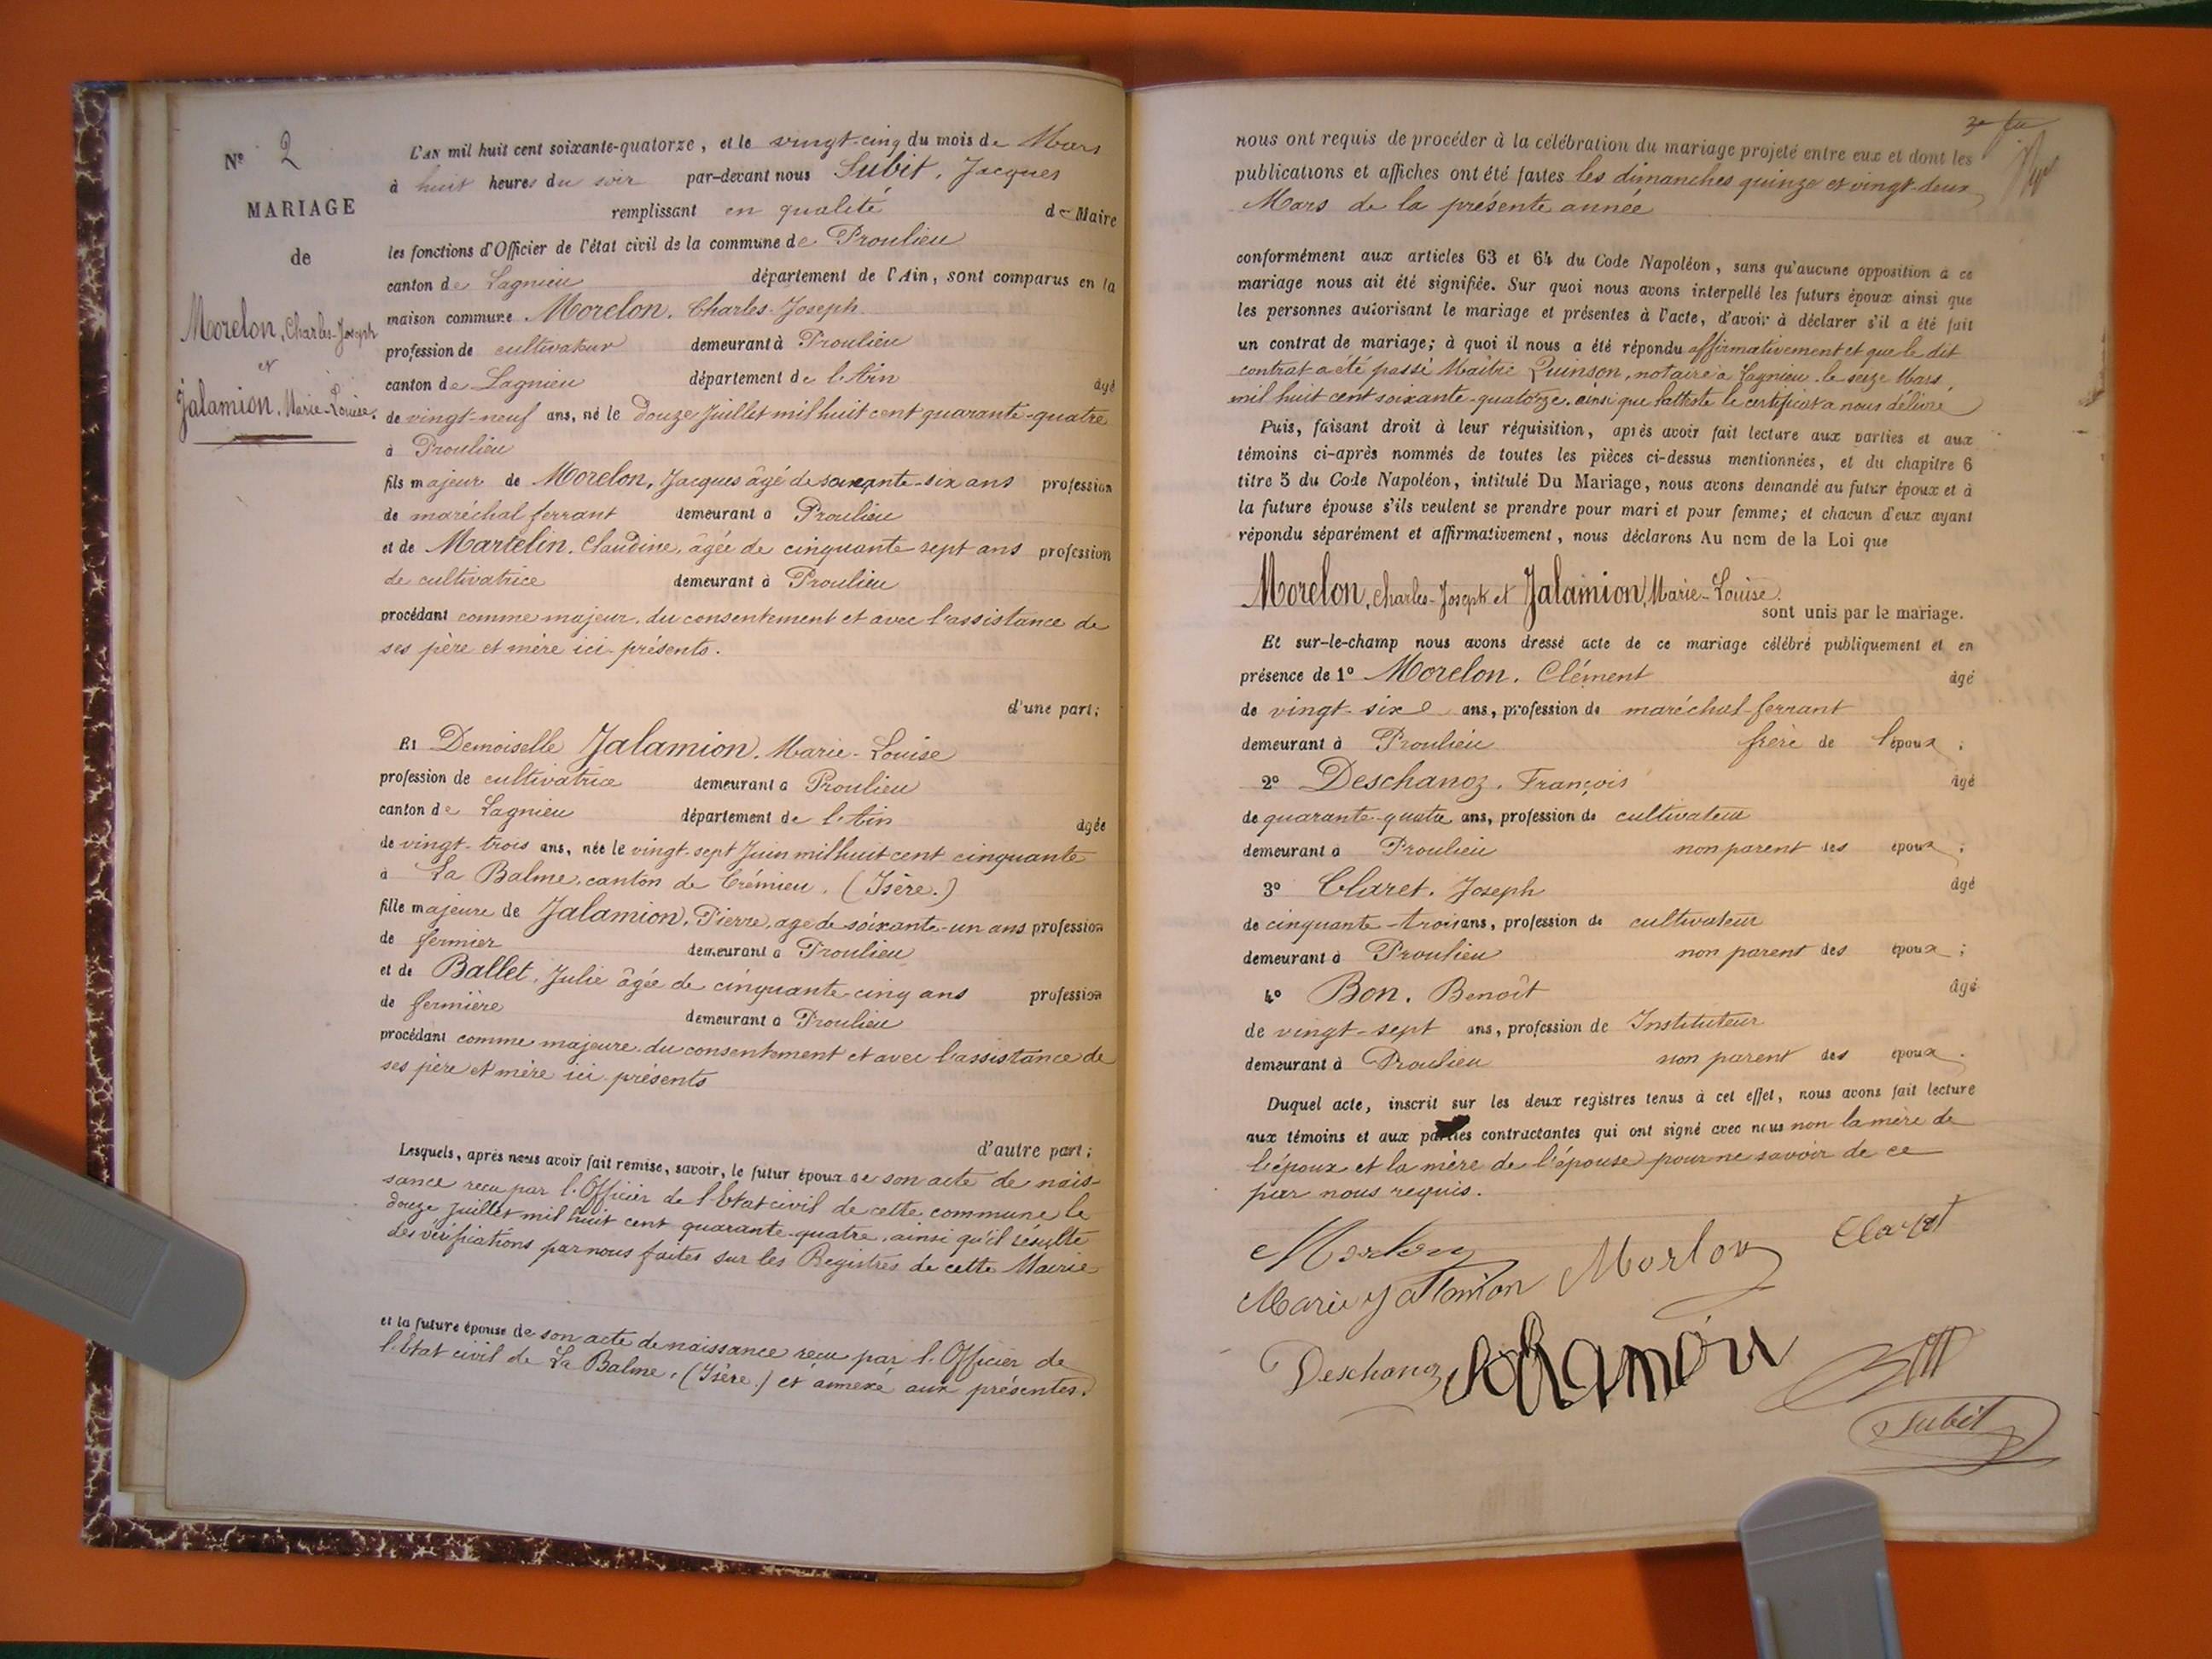 Nº 2
MARIAGE
de
Morelon, Charles-Joseph
et
Jalamion, Marie-Louise.
L'AN mil huit cent soixante-quatorze, et le vingt-cinq du mois de Mars
à huit heures du soir par-devant nous Subit, Jacques
remplissant en qualité de Maire
les fonctions d'Officier de l'état civil de la commune de Proulieu
canton de Lagnieu département de l'Ain, sont comparus en la
maison commune Morelon, Charles-Joseph
profession de cultivateur demeurant à Proulieu
canton de Lagnieu département de l'Ain âgé
de vingt-neuf ans, né le douze Juillet mil huit cent quarante-quatre
à Proulieu
fils majeur de Morelon, Jacques âgé de soixante-six ans profession
de maréchal ferrant demeurant à Proulieu
et de Martelin, Claudine, âgée de cinquante sept ans profession
de cultivatrice demeurant à Proulieu
procédant comme majeur, du consentement et avec l'assistance de
ses père et mère ici présents.
d'une part;
Et Demoiselle Jalamion, Marie-Louise
profession de cultivatrice demeurant à Proulieu
canton de Lagnieu département de l'Ain âgée
de vingt-trois ans, née le vingt-sept Juin mil huit cent cinquante
à La Balme, canton de Crémieu, (Isère.)
fille majeure de Jalamion, Pierre, âgé de soixante-un ans profession
de fermier demeurant à Proulieu
et de Ballet, Julie âgée de cinquante-cinq ans profession
de fermière demeurant à Proulieu
procédant comme majeure, du consentement et avec l'assistance de
ses père et mère ici présents
d'autre part;
Lesquels, après nous avoir fait remise, savoir, le futur époux de son acte de nais-
sance reçu par l'Officier de l'Etat civil de cette commune le
douze Juillet mil huit cent quarante-quatre, ainsi qu'il résulte
des vérifications par nous faites sur les Registres de cette Mairie
et la future épouse de son acte de naissance reçu par l'Officier de
l'Etat civil de La Balme, (Isère) et annexé aux présentes.
nous ont requis de procéder à la célébration du mariage projeté entre eux et dont les
publications et affiches ont été faites les dimanches quinze et vingt-deux
Mars de la présente année
conformément aux articles 63 et 64 du Code Napoléon, sans qu'aucune opposition à ce
mariage nous ait été signifiée. Sur quoi nous avons interpellé les futurs époux ainsi que
les personnes autorisant le mariage et présentes à l'acte, d'avoir à déclarer s'il a été fait
un contrat de mariage; à quoi il nous a été répondu affirmativement et que le dit
contrat a été passé Maître Quinson, notaire à Lagnieu le seize Mars,
mil huit cent soixante-quatorze, ainsi que l'atteste le certificat a nous délivré
Puis, faisant droit à leur réquisition, après avoir fait lecture aux parties et aux
témoins ci-après nommés de toutes les pièces ci-dessus mentionnées, et du chapitre 6
titre 5 du Code Napoléon, intitulé Du Mariage, nous avons demandé au futur époux et à
la future épouse s'ils veulent se prendre pour mari et pour femme; et chacun d'eux ayant
répondu séparément et affirmativement, nous déclarons Au nom de la Loi que
Morelon, Charles-Joseph et Jalamion, Marie-Louise.
sont unis par le mariage.
Et sur-le-champ nous avons dressé acte de ce mariage célébré publiquement et en
présence de 1º Morelon, Clément âgé
de vingt-six ans, profession de maréchal-ferrant
demeurant à Proulieu frère de l'époux;
2º Deschanoz, François âgé
de quarante-quatre ans, profession de cultivateur
demeurant à Proulieu non parent des époux;
3º Claret, Joseph âgé
de cinquante-trois ans, profession de cultivateur
demeurant à Proulieu non parent des époux;
4º Bon, Benoît âgé
de vingt-sept ans, profession de Instituteur
demeurant à Proulieu non parent des époux.
Duquel acte, inscrit sur les deux registres tenus à cet effet, nous avons fait lecture
aux témoins et aux parties contractantes qui ont signé avec nous non la mère de
l'époux et la mère de l'épouse pour ne savoir de ce
par nous requis.
Morlon Claret
Marie Jallamion
Deschanoz
Subit